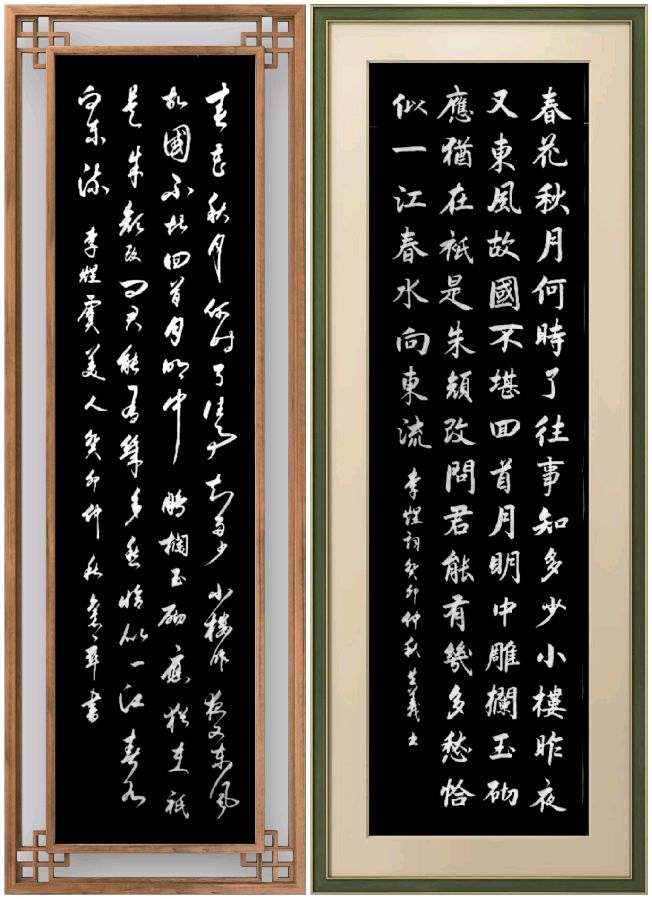 春花秋月何時了往事知多少小樓昨夜
又東風故國不堪回首月明中雕攔玉砌
應猶在祇是朱顏改問君能有幾多愁恰
似一江春水向東流
李煜詞癸卯仲秋
春花秋月何时了往事知多少小樓昨夜又东風
故國不堪回首月明中雕欄玉砌應猶在祇
是朱颜改问君能有幾多愁恰似一江春水
向东流
李煜虞美人癸卯仲秋書